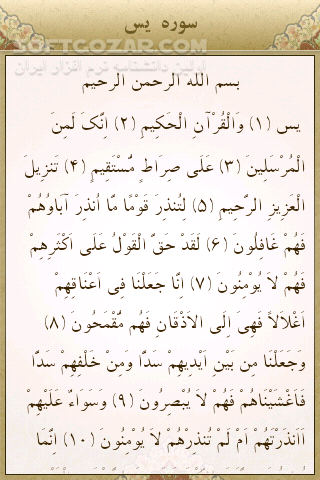 سوره یس
SOFTCOZAR.COM
اولین دانشنامه نرم افزار ایران
بسم الله الرحمن الرحیم
یس (۱) وَالْقُرْآنِ الْحَکِیمِ (۲) إِنَّکَ لَمِنَ
الْمُرْسَلِینَ (۳) عَلَى صِرَاطٍ مُّسْتَقِیمٍ (۴) تَنزِیلَ
الْعَزِیزِ الرَّحِیمِ (۵) لِتُنذِرَ قَوْمًا مَّا أُنذِرَ آبَاؤُهُمْ
فَهُمْ غَافِلُونَ (۶) لَقَدْ حَقَّ الْقَوْلُ عَلَى أَکْثَرِهِمْ
فَهُمْ لاَ یُؤْمِنُونَ (۷) إِنَّا جَعَلْنَا فِی أَعْنَاقِهِمْ
أَغْلاَلاً فَهِیَ إِلَى الأَذْقَانِ فَهُم مُّقْمَحُونَ (۸)
وَجَعَلْنَا مِن بَیْنِ أَیْدِیهِمْ سَدًّا وَمِنْ خَلْفِهِمْ سَدًّا
فَأَغْشَیْنَاهُمْ فَهُمْ لاَ یُبْصِرُونَ (۹) وَسَوَاء عَلَیْهِمْ
أَأَنذَرْتَهُمْ أَمْ لَمْ تُنذِرْهُمْ لاَ یُؤْمِنُونَ (۱۰) إِنَّمَا